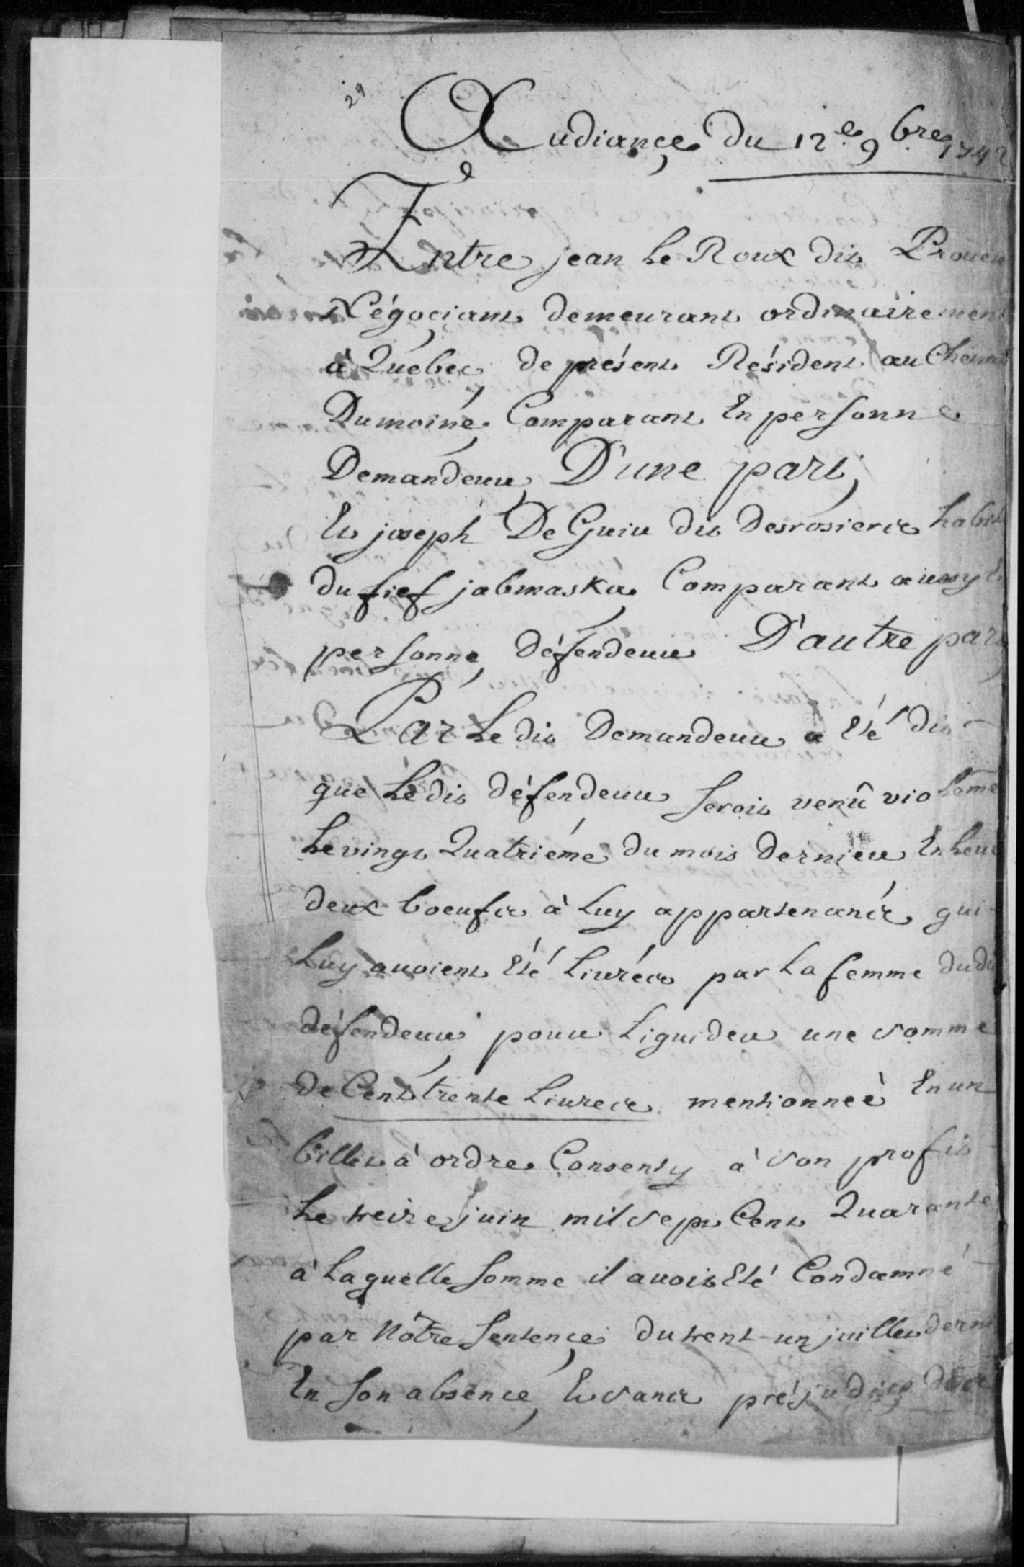 29
Audiançe, du 12e 9bre 1742
Entre jean Le Roux dit Proven
Négoçiant demeurant ordinairement
à Québec, de présent Résident au Chenal
Dumoine, Comparant En personne
Demandeur, D'une part,
Et joseph DeGuir dit desrosiers habit
du fief jabmaska, Comparant aussy En
personne, défendeur D'autre part,
Par Le dit Demandeur a Eté dit
que Ledit défendeur Seroit venû violeme
Le vingt Quatriéme du mois dernier Enlever
deux boeufs à Luy appartenants qui
Luy avoient Eté Livrées par La femme dudit
défendeur, pour Liquider une somme
de Cent trente Livres mentionneè En un
billet à ordre Consenty à son profit
Le treize juin mil sept Cent Quarante
à Laquelle Somme il avoit Eté Condamné
par Nôtre Sentençe, du trent-un juillet dern
En Son absence, Et sans préjudiçe